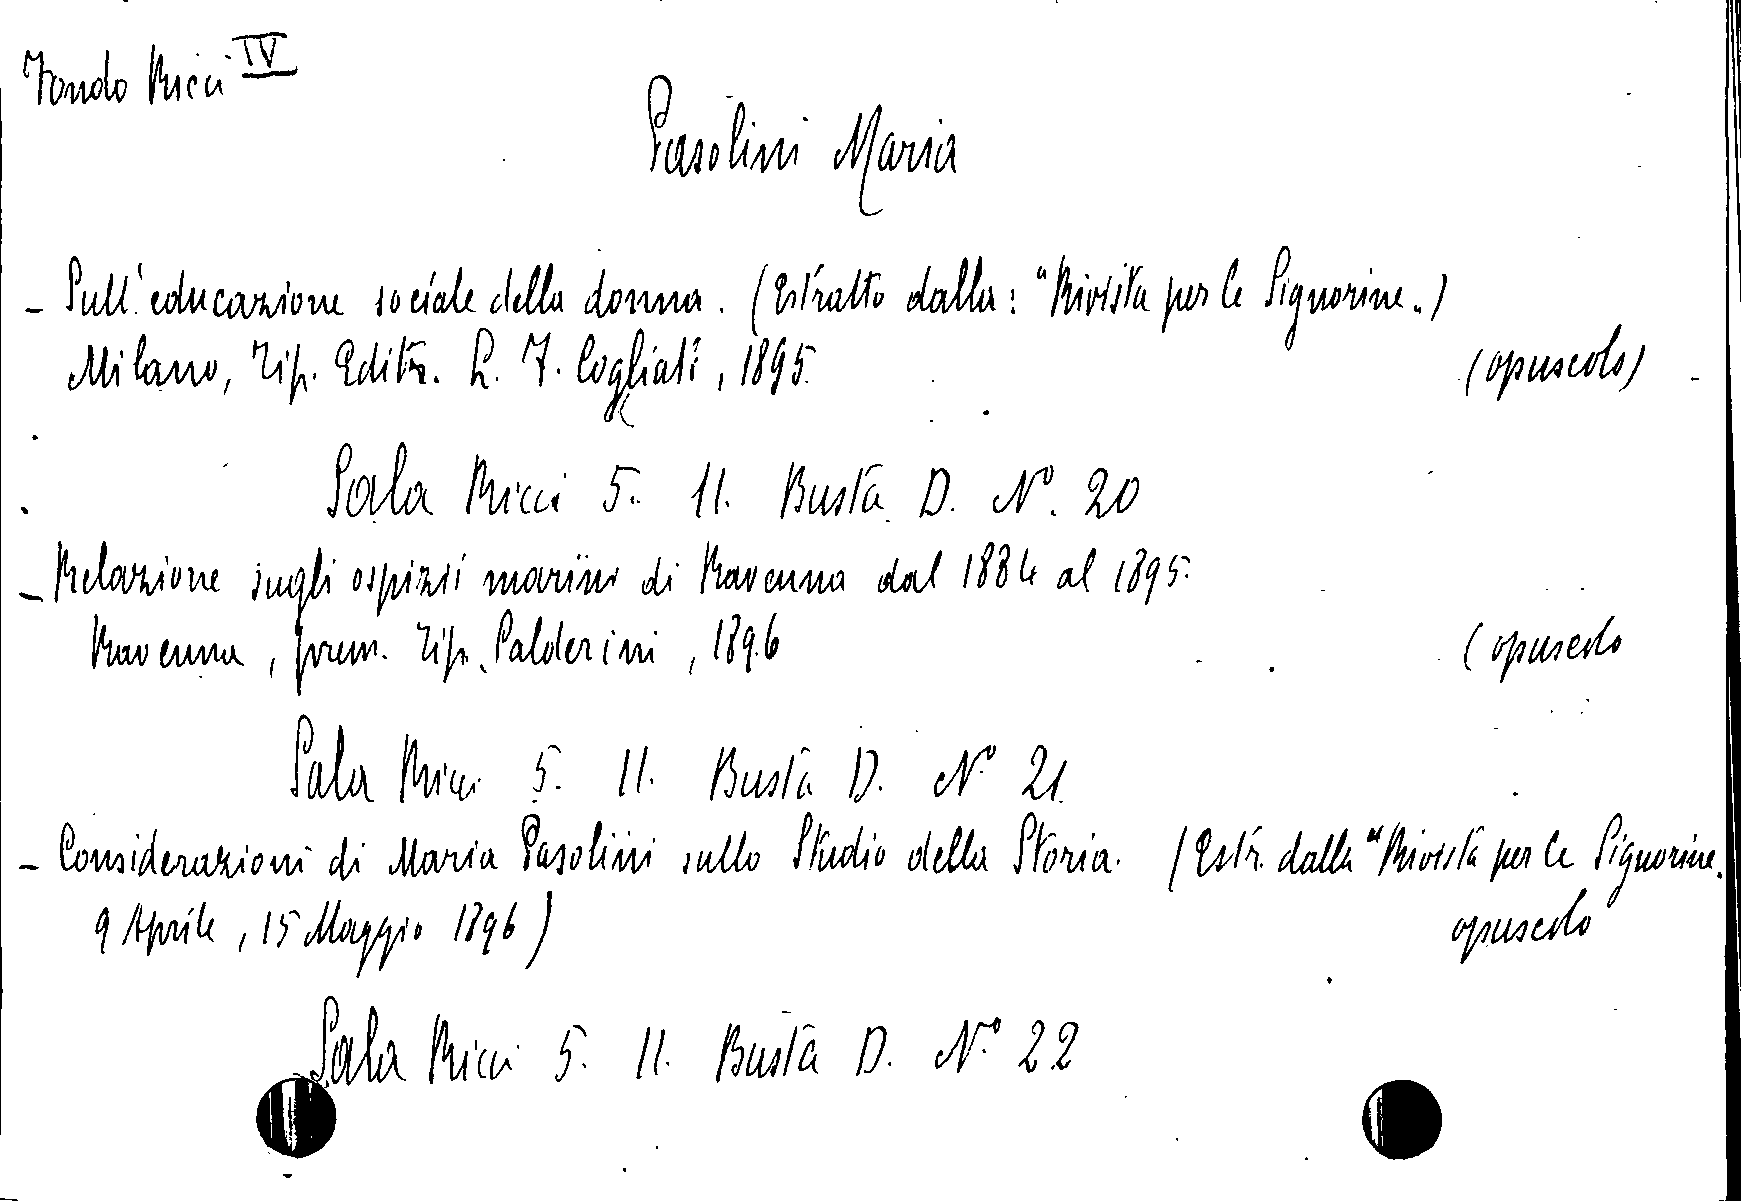 Fondo Ricci IV
Pasolini Maria
- Sull'educazione sociale della donna. (Estratto dalla: "Rivista per le Signorine.)
Milano, Tip. Editr. L. F. Cogliati, 1895. (opuscolo)
Sala Ricci 5. 11. Busta D. N°. 20
- Relazione sugli ospizii marini di Ravenna dal 1884 al 1895.
Ravenna, prem. Tip. Calderini, 1896 (opuscolo
Sala Ricci 5. 11. Busta D. N° 21
- Considerazioni di Maria Pasolini sullo Studio della Storia. (Estr. dalla "Rivista per le Signorine.
9 Aprile, 15 Maggio 1896) opuscolo
Sala Ricci 5. 11. Busta D. N° 22